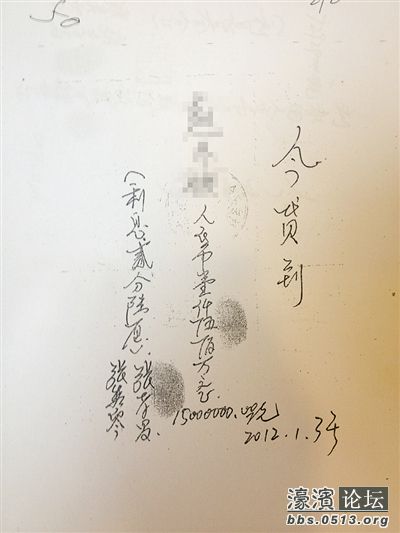 50
今贷到
人民币壹仟伍佰万元
15000000.00元
2012.1.3号
(利息贰分陆
张
张
濠滨论坛
bbs.0513.org